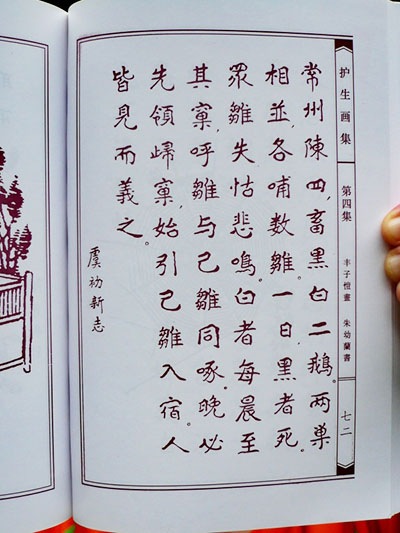 护生画集
第四集
丰子愷畫 朱幼蘭書
七二
常州陳四,畜黑白二鵝。两巢
相並,各哺数雛。一日,黑者死。
眾雛失怙悲鳴。白者每晨至
其窠,呼雛与己雛同啄。晚必
先領歸窠,始引己雛入宿。人
皆見而義之。
虞初新志